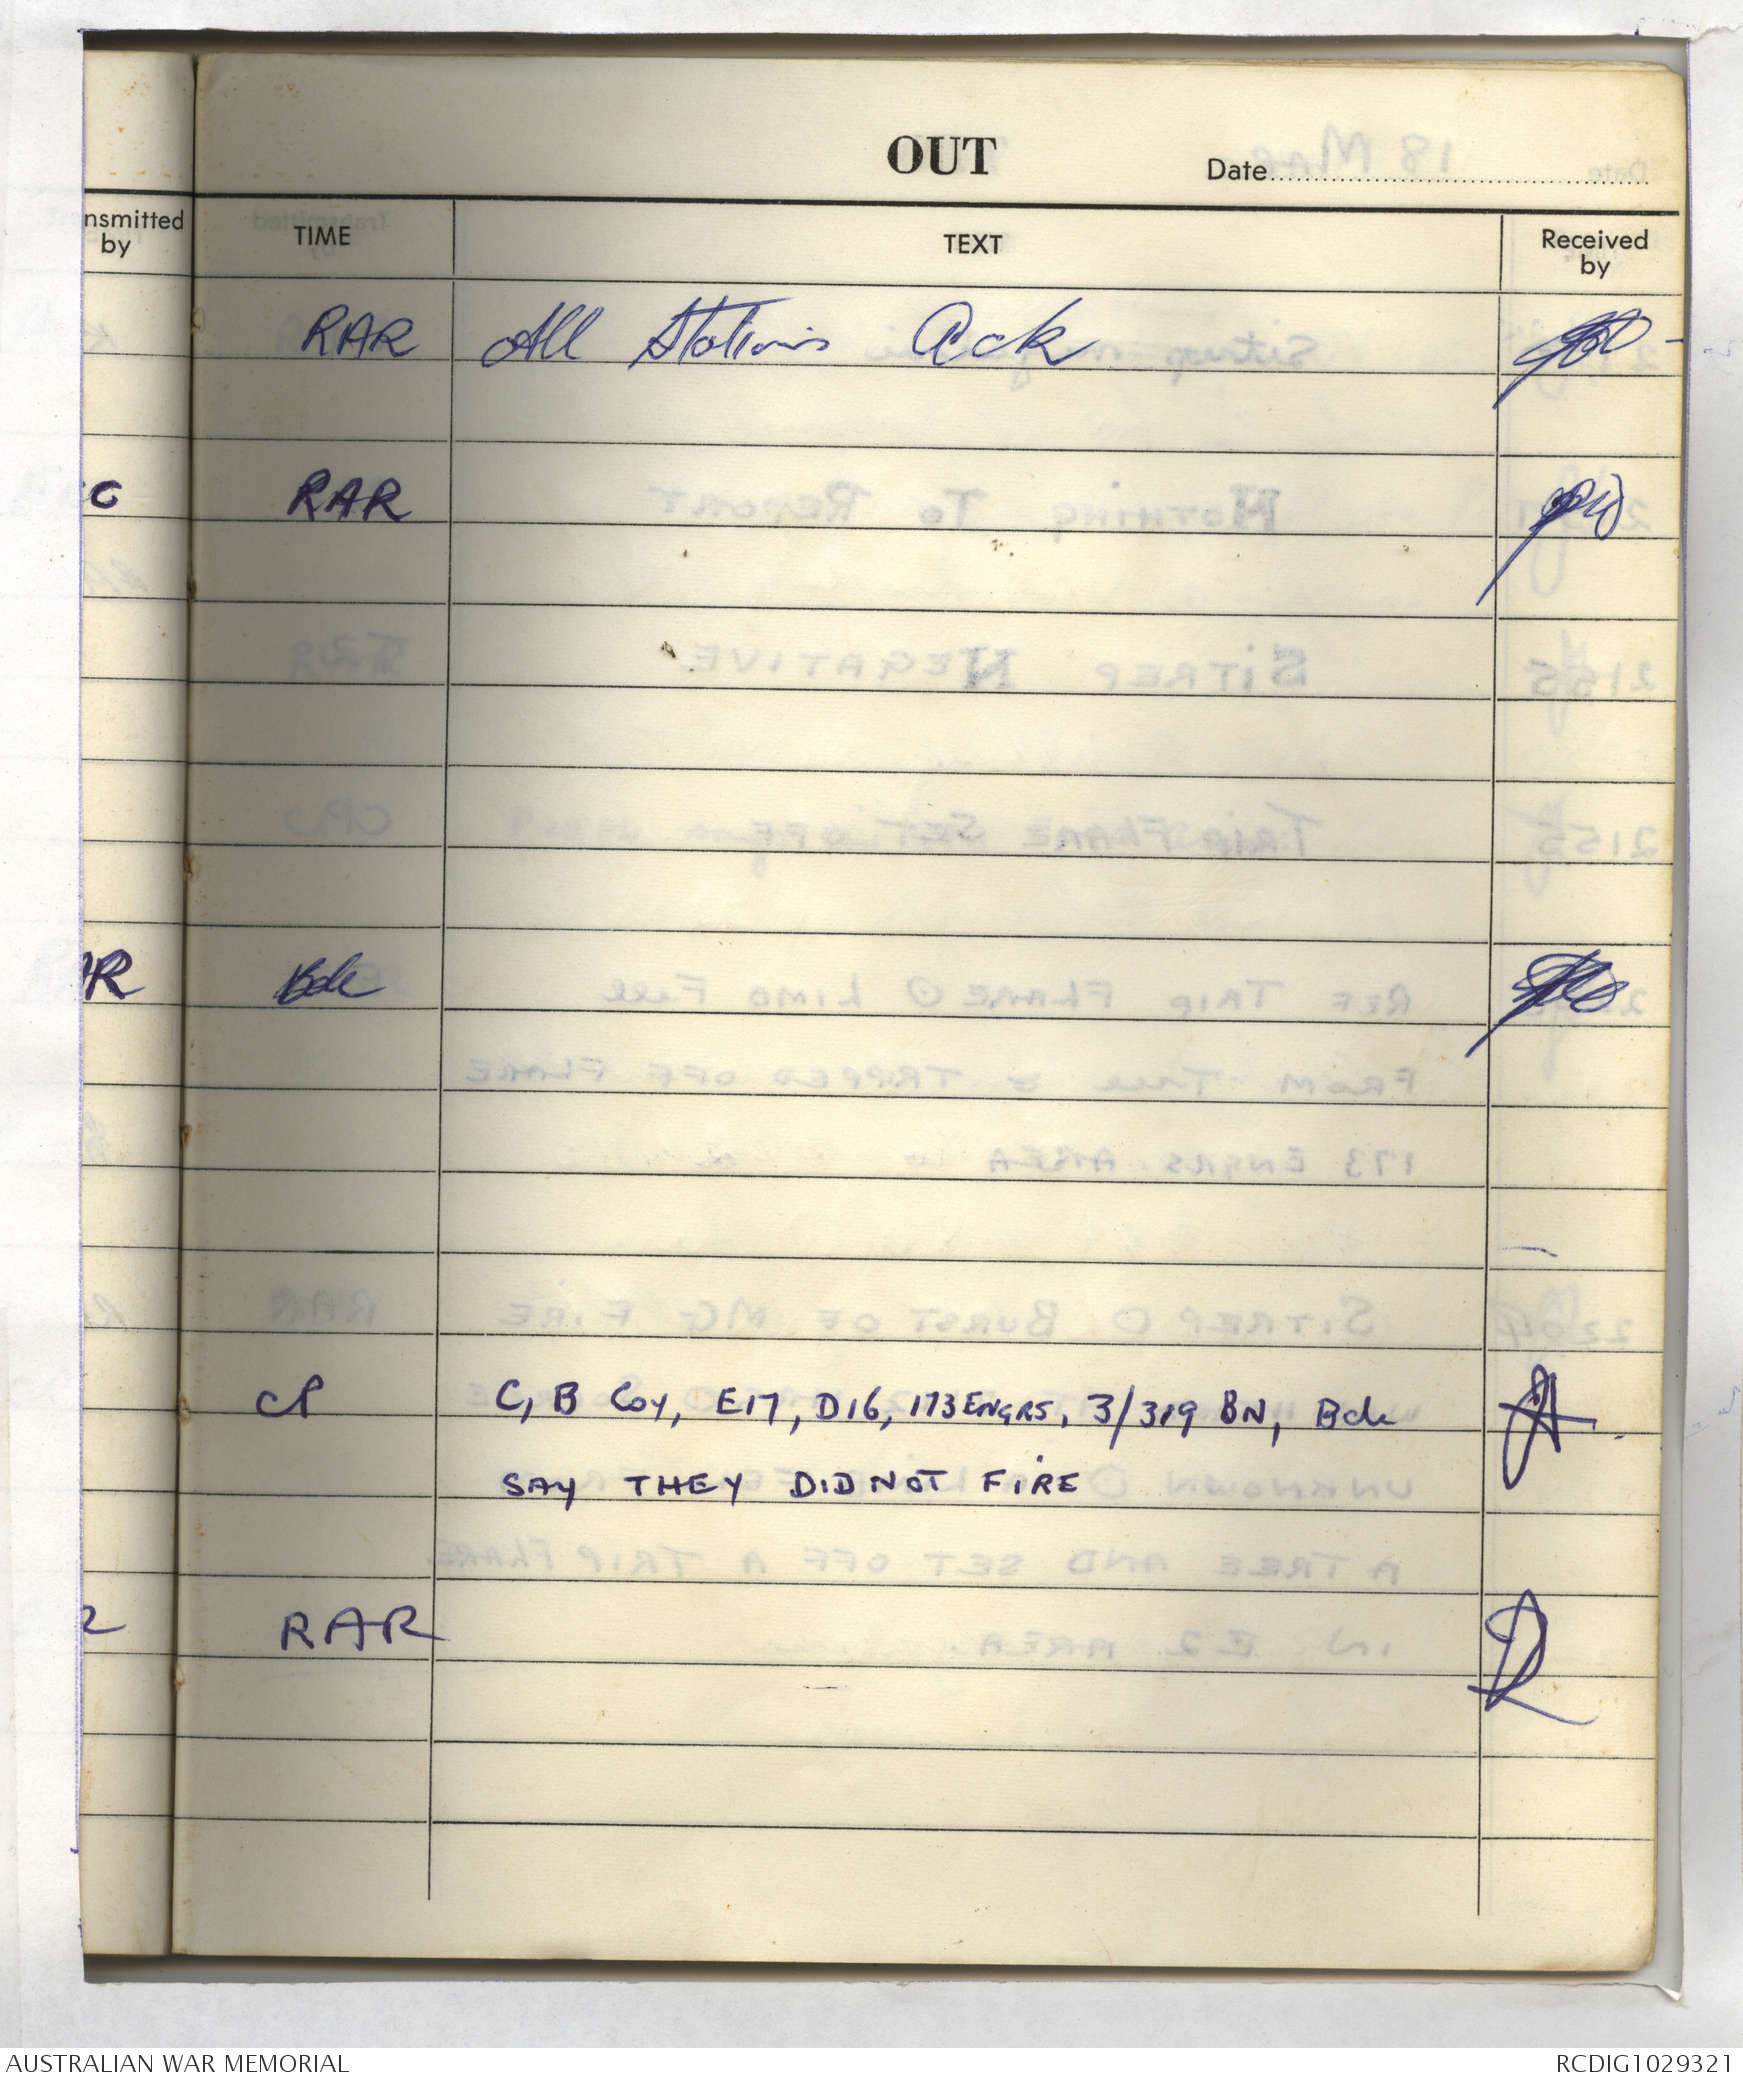 OUT
Date
nsmitted by
TIME
TEXT
Received by
RAR All Stations Ack
C RAR
R Bde
CP C, B Coy, E17, D16, 173 ENGRS, 3/319 BN, Bde
SAY THEY DID NOT FIRE
RAR
AUSTRALIAN WAR MEMORIAL
RCDIG1029321